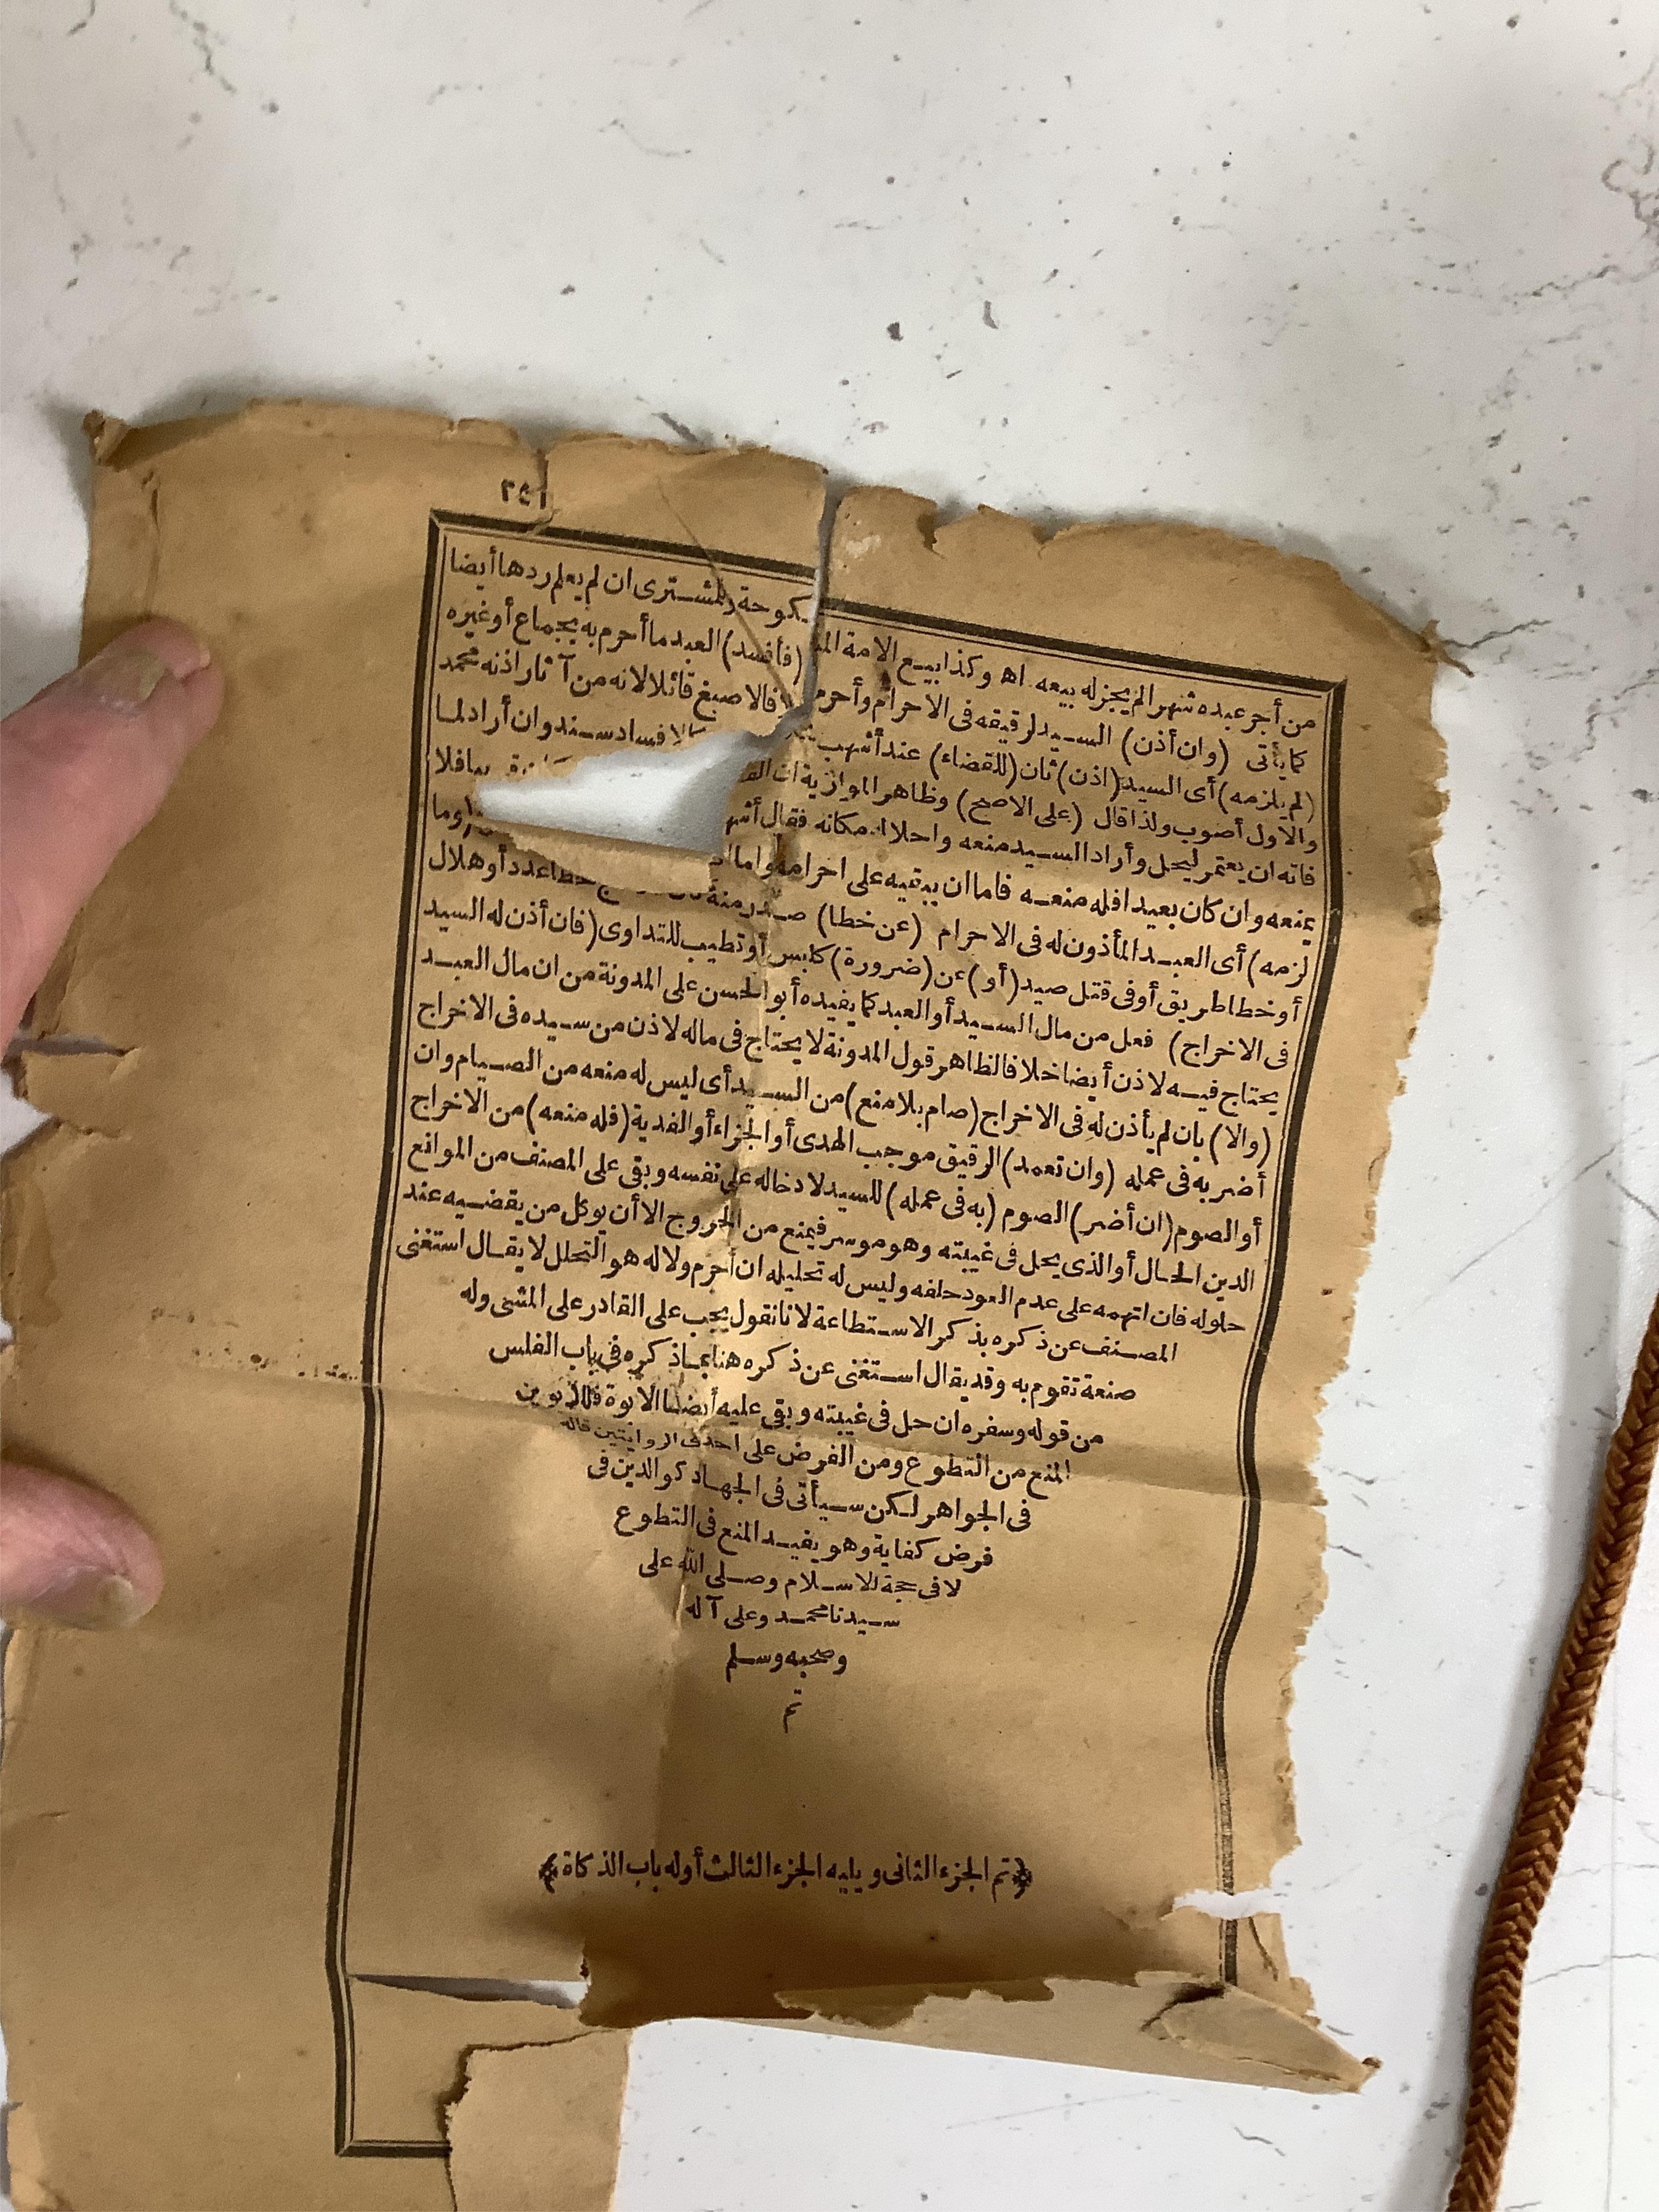 ٣٤١
من أجر عبده شهرا لم يجز له بيعه اه وكذا بيع الامة المنكوحة وللمشترى ان لم يعلم ردها أيضا
كما يأتى (وان أذن) السيد لرقيقه فى الاحرام وأحرم (فأفسد) العبد ما أحرم به بجماع أو غيره
(لم يلزمه) أى السيد (اذن) ثان (للقضاء) عند أشهب فالاصبغ قائلا لانه من آثار اذنه محمد
والاول أصوب ولذا قال (على الاصح) وظاهر الموازية ان الافساد سند وان أراد لما
فاته ان يعتمر ليحل وأراد السيد منعه واحلاله مكانه فقال أشهب فلا
يمنعه وان كان بعيدا فله منعه فاما ان يبقيه على احرامه واما وما
لزمه) أى العبد المأذون له فى الاحرام (عن خطا) صدر منه خطا عدد أو هلال
أو خطا طريق أو فى قتل صيد (أو) عن (ضرورة) كلبس أو تطيب للتداوى (فان أذن له السيد
فى الاخراج) فعل من مال السيد أو العبد كما يفيده أبو الحسن على المدونة من ان مال العبد
يحتاج فيه لاذن أيضا خلافا لظاهر قول المدونة لا يحتاج فى ماله لاذن من سيده فى الاخراج
(والا) بان لم يأذن له فى الاخراج (صام بلا منع) من السيد أى ليس له منعه من الصيام وان
أضر به فى عمله (وان تعمد) الرقيق موجب الهدى أو الجزاء أو الفدية (فله منعه) من الاخراج
أو الصوم (ان أضر) الصوم (به فى عمله) للسيد لادخاله على نفسه وبقى على المصنف من الموانع
الدين الحال أو الذى يحل فى غيبته وهو موسر فيمنع من الخروج الا أن يوكل من يقضيه عند
حلوله فان اتهمه على عدم العود حلفه وليس له تحليله ان أحرم ولا له هو التحلل لا يقال استغنى
المصنف عن ذكره بذكر الاستطاعة لانا نقول يجب على القادر على المشى وله
صنعة تقوم به وقد يقال استغنى عن ذكره هنا بما ذكره فى باب الفلس
من قوله وسفره ان حل فى غيبته وبقى عليه أيضا الابوة فللابوين
المنع من التطوع ومن الفرض على احدى الروايتين قاله
فى الجواهر لكن سيأتى فى الجهاد كوالدين فى
فرض كفاية وهو يفيد المنع فى التطوع
لا فى حجة الاسلام وصلى الله على
سيدنا محمد وعلى آله
وصحبه وسلم
تم
﴿تم الجزء الثانى ويليه الجزء الثالث أوله باب الذكاة﴾